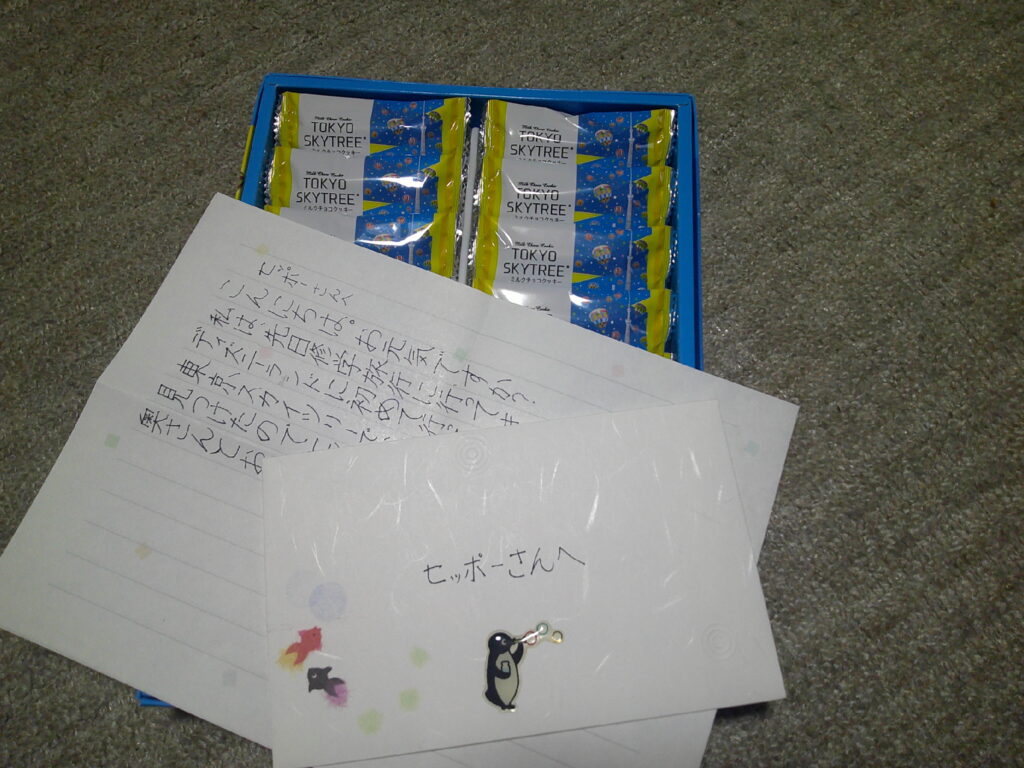 Milk Choco Cookie
TOKYO
SKYTREE®
ミルクチョコクッキー
Milk Choco Cookie
TOKYO
SKYTREE®
ミルクチョコクッキー
Milk Choco Cookie
TOKYO
SKYTREE®
Milk Choco Cookie
TOKYO
SKYTREE®
ミルクチョコクッキー
Milk Choco Cookie
TOKYO
SKYTREE®
ミルクチョコクッキー
セッポーさんへ
こんにちは。お元気ですか?
私は、先日修学旅行に行ってき
ディズニーランドに初めて行っ
東京スカイツリーで、
見つけたので
奥さんとお
セッポーさんへ